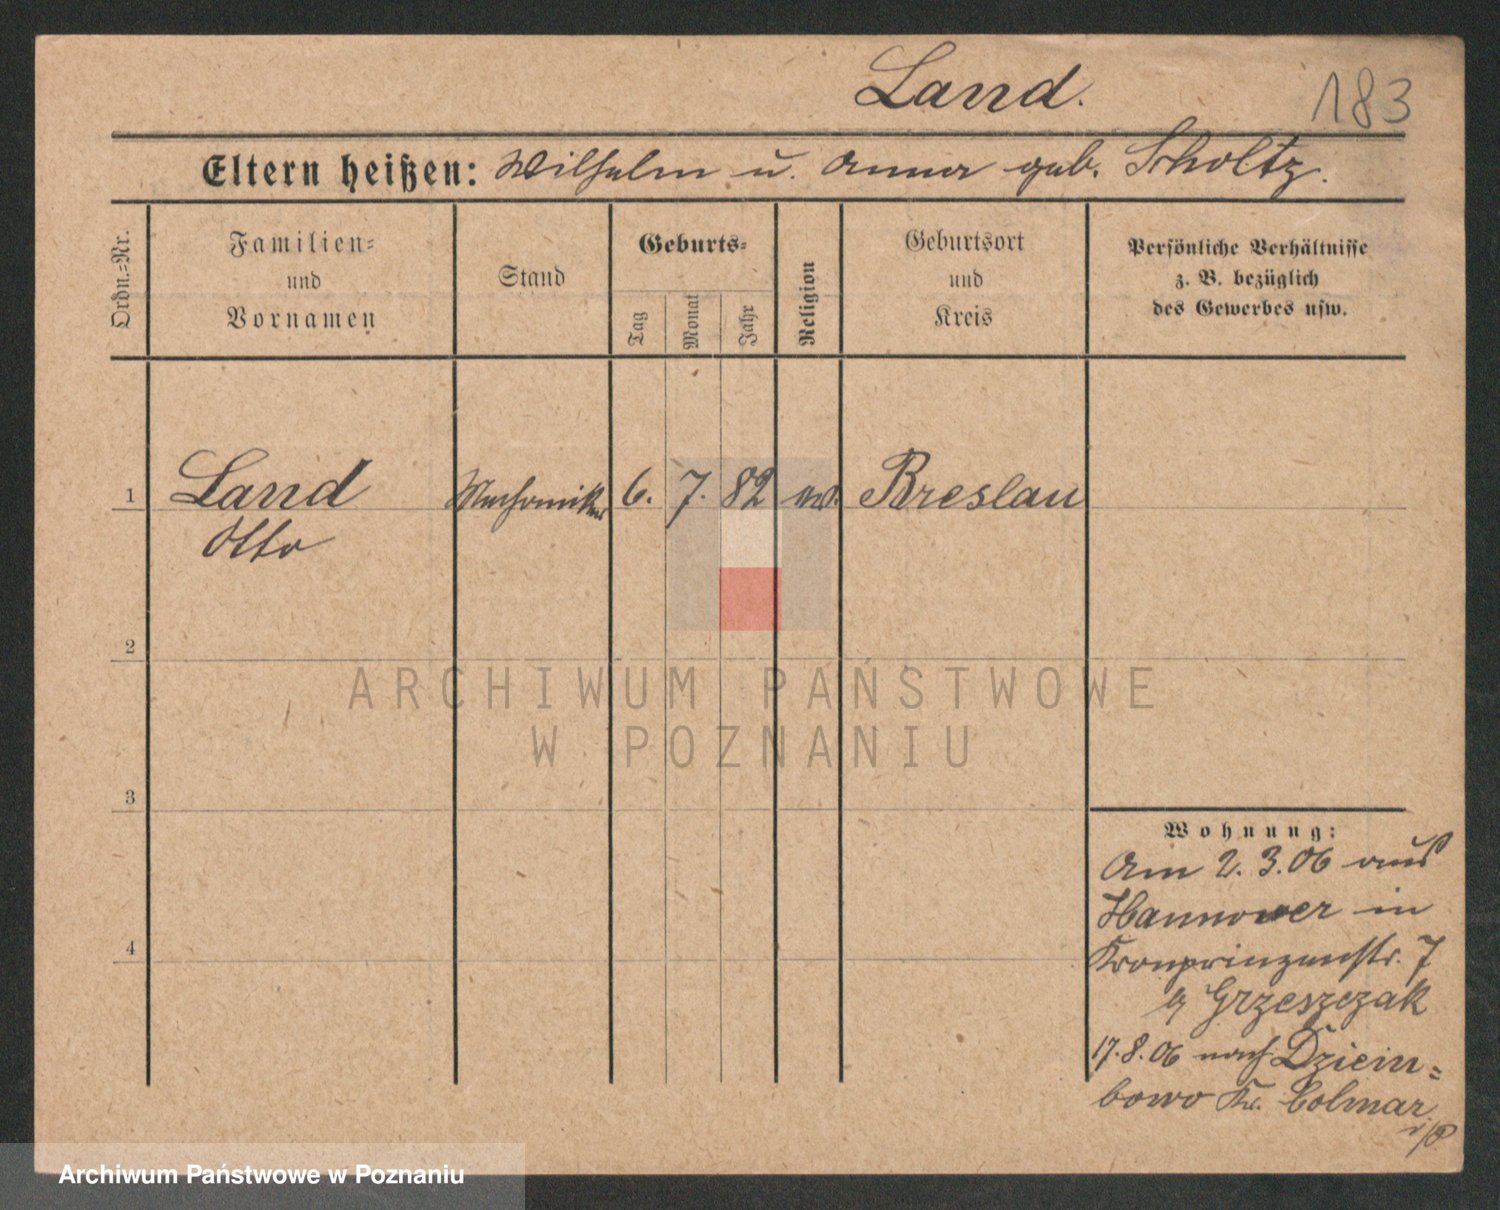 Land.
183
Eltern heißen: Wilhelm u. Anna geb. Scholtz.
Ordn.-Nr.
Familien-
und
Vornamen
Stand
Geburts-
Tag
Monat
Jahr
Religion
Geburtsort
und
Kreis
Persönliche Verhältnisse
z. B. bezüglich
des Gewerbes usw.
1 Land Mechaniker 6. 7. 82 ev. Breslau
Otto
2
3
4
Wohnung:
Am 2. 3. 06 aus
Hannower in
Kronprinzenstr. 7
b/ Grzeszczak
17. 8. 06 nach Dziem-
bowo Kr. Colmar
i/P.
ARCHIWUM PAŃSTWOWE
W POZNANIU
Archiwum Państwowe w Poznaniu